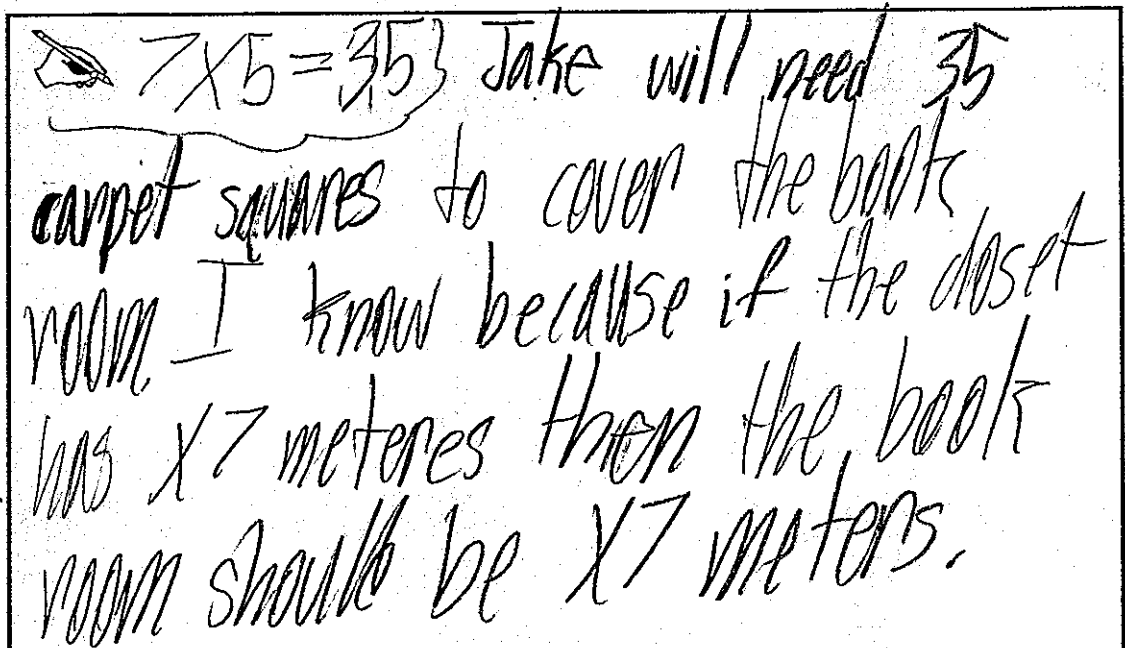 7X5=35} Jake will need 35
carpet squares to cover the book
room. I know because if the closet
has X7 meteres then the book
room should be X7 meters.